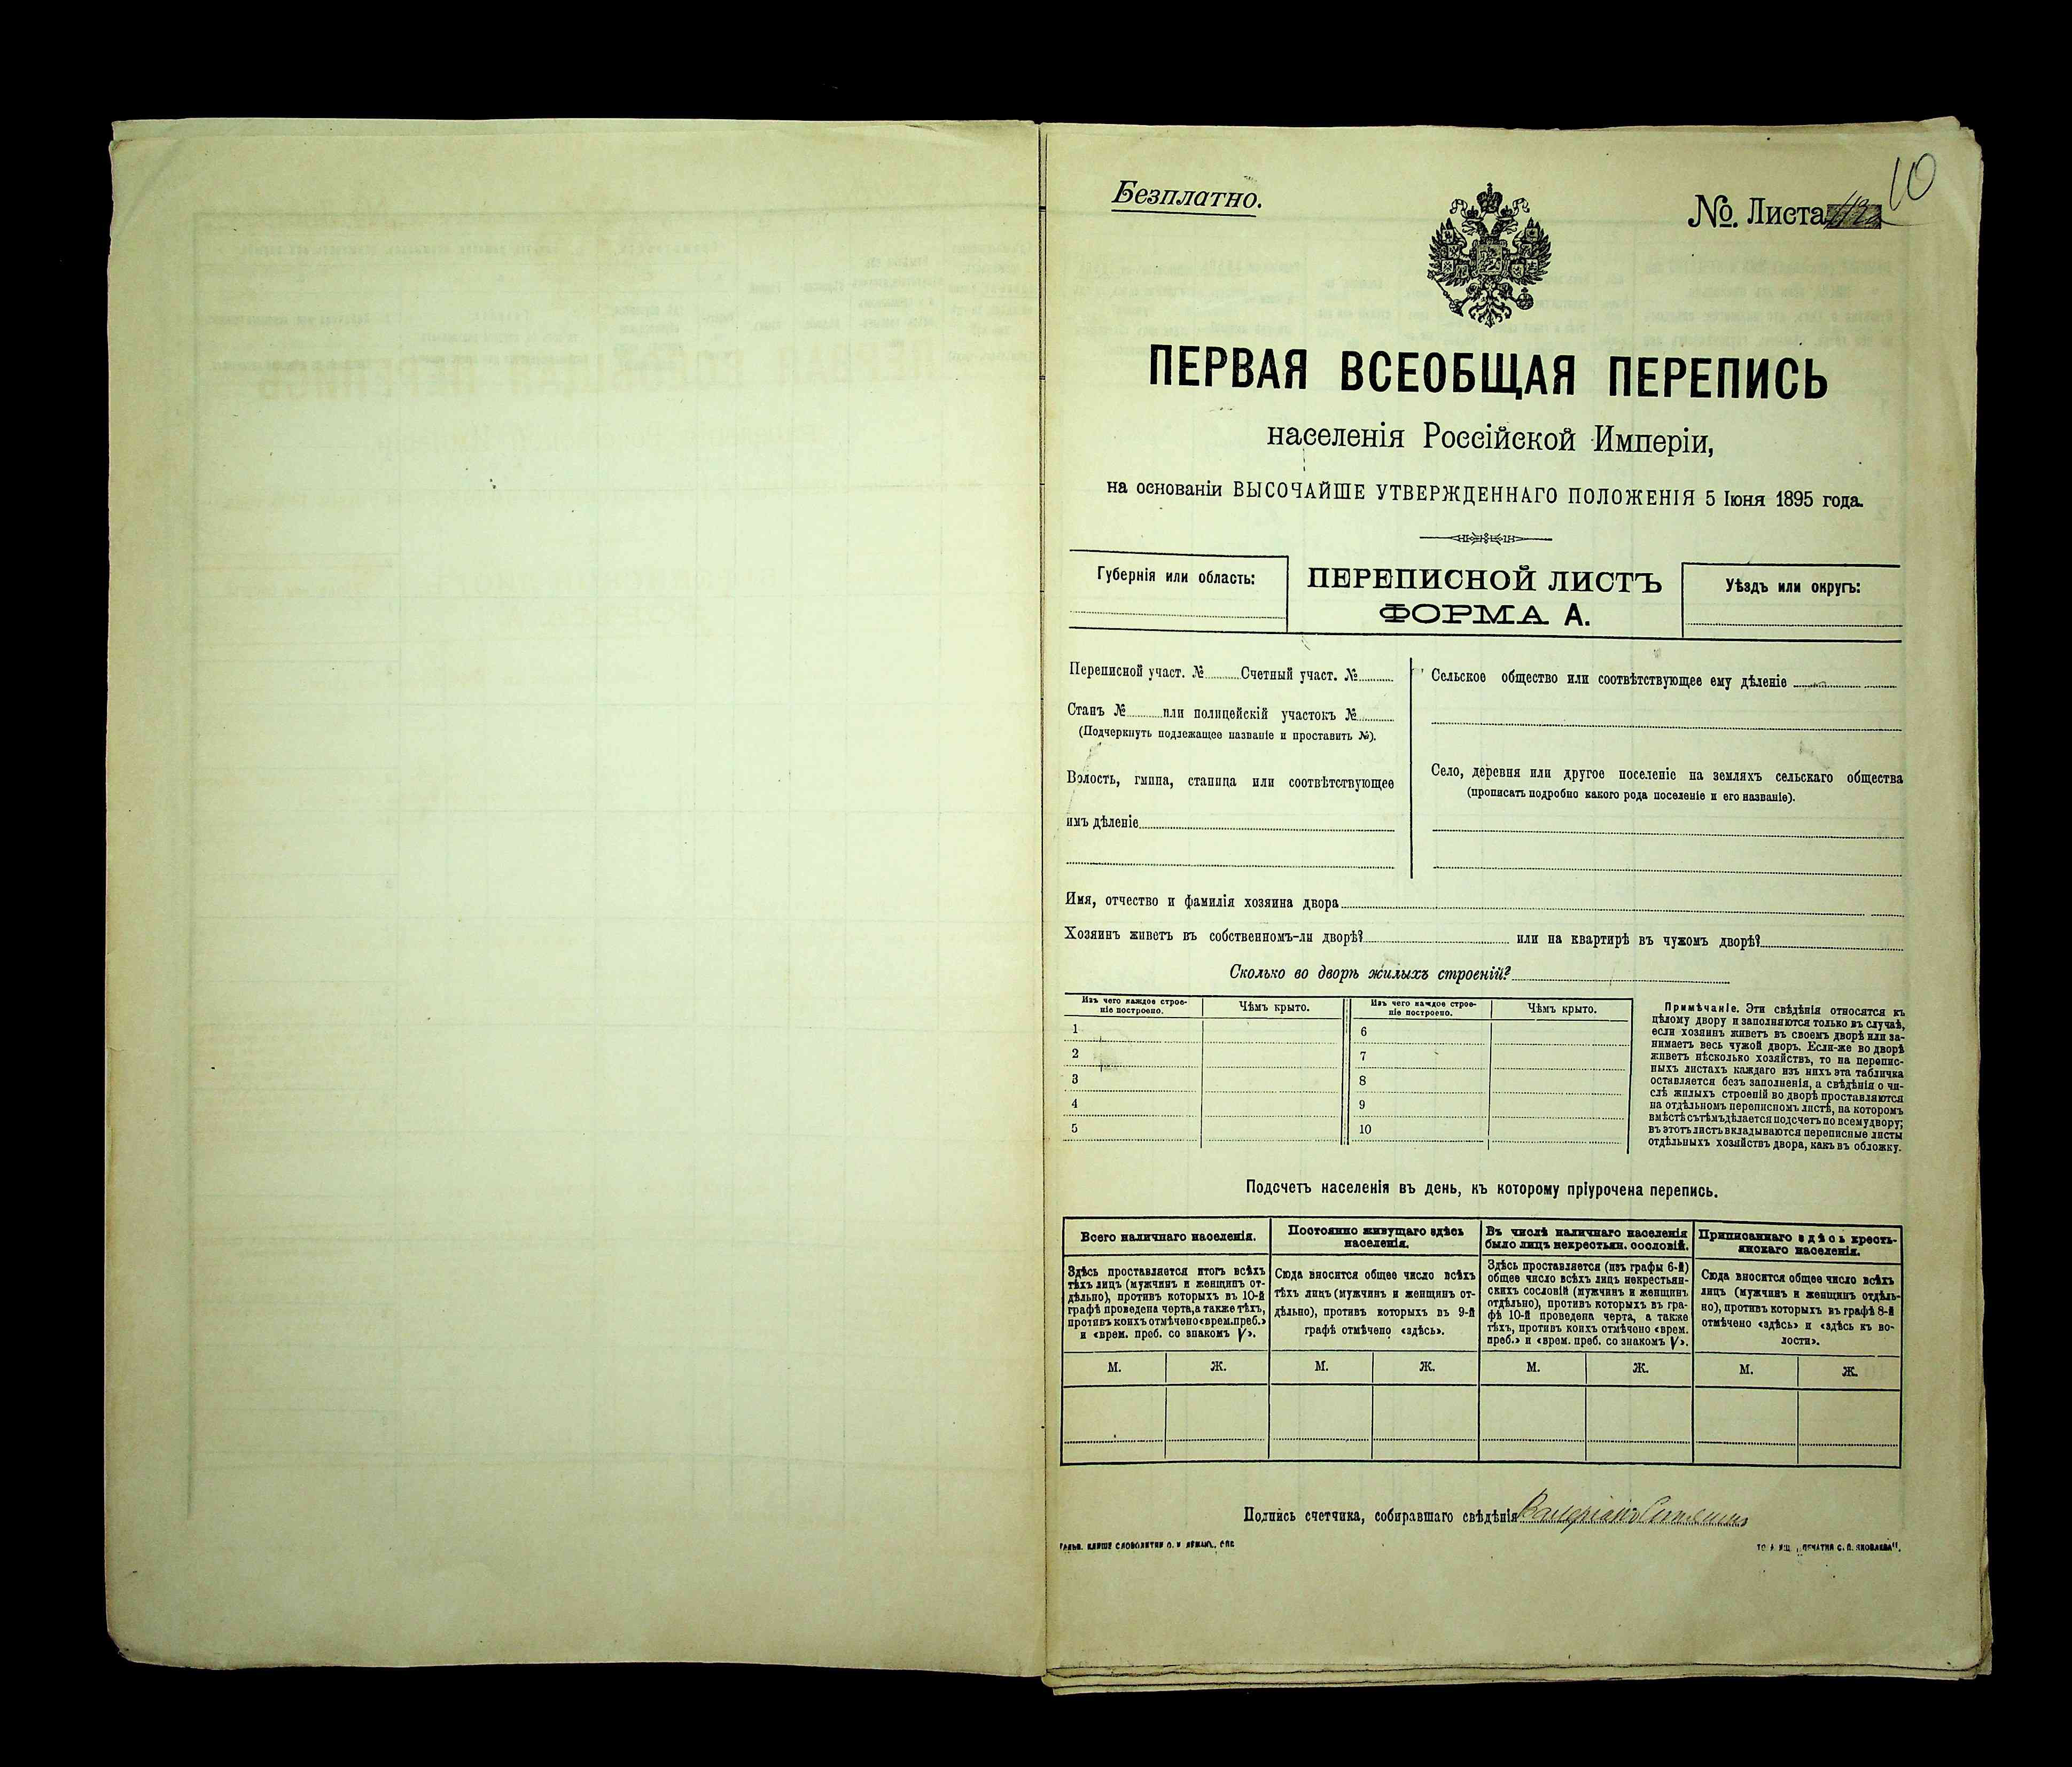 Безплатно.
№. Листа
10
ПЕРВАЯ ВСЕОБЩАЯ ПЕРЕПИСЬ
населенія Россійской Имперіи,
на основаніи ВЫСОЧАЙШЕ УТВЕРЖДЕННАГО ПОЛОЖЕНІЯ 5 Іюня 1895 года.
Губернія или область:
ПЕРЕПИСНОЙ ЛИСТЪ
ФОРМА А.
Уѣздъ или округъ:
Переписной участ. № Счетный участ. №
Станъ № или полицейскій участокъ №
(Подчеркнуть подлежащее названіе и проставить №).
Волость, гмина, станица или соотвѣтствующее
имъ дѣленіе
Сельское общество или соотвѣтствующее ему дѣленіе
Село, деревня или другое поселеніе на земляхъ сельскаго общества
(прописать подробно какого рода поселеніе и его названіе).
Имя, отчество и фамилія хозяина двора
Хозяинъ живетъ въ собственномъ-ли дворѣ? или на квартирѣ въ чужомъ дворѣ?
Сколько во дворѣ жилыхъ строеній?
Изъ чего каждое строе-
ніе построено.
Чѣмъ крыто.
1
2
3
4
5
Изъ чего каждое строе-
ніе построено.
Чѣмъ крыто.
6
7
8
9
10
Примѣчаніе. Эти свѣдѣнія относятся къ
цѣлому двору и заполняются только въ случаѣ,
если хозяинъ живетъ въ своемъ дворѣ или за-
нимаетъ весь чужой дворъ. Если-же во дворѣ
живетъ нѣсколько хозяйствъ, то на перепис-
ныхъ листахъ каждаго изъ нихъ эта табличка
оставляется безъ заполненія, а свѣдѣнія о чи-
слѣ жилыхъ строеній во дворѣ проставляются
на отдѣльномъ переписномъ листѣ, на которомъ
вмѣстѣ съ тѣмъ дѣлается подсчетъ по всему двору;
въ этотъ листъ вкладываются переписные листы
отдѣльныхъ хозяйствъ двора, какъ въ обложку.
Подсчетъ населенія въ день, къ которому пріурочена перепись.
Всего наличнаго населенія.
Здѣсь проставляется итогъ всѣхъ
тѣхъ лицъ (мужчинъ и женщинъ от-
дѣльно), противъ которыхъ въ 10-й
графѣ проведена черта, а также тѣхъ,
противъ коихъ отмѣчено «врем. преб.»
и «врем. преб. со знакомъ V».
Постоянно живущаго здѣсь
населенія.
Сюда вносится общее число всѣхъ
тѣхъ лицъ (мужчинъ и женщинъ от-
дѣльно), противъ которыхъ въ 9-й
графѣ отмѣчено «здѣсь».
Въ числѣ наличнаго населенія
было лицъ некрестьян. сословій.
Здѣсь проставляется (изъ графы 6-й)
общее число всѣхъ лицъ некрестьян-
скихъ сословій (мужчинъ и женщинъ
отдѣльно), противъ которыхъ въ гра-
фѣ 10-й проведена черта, а также
тѣхъ, противъ коихъ отмѣчено «врем.
преб.» и «врем. преб. со знакомъ V».
Приписаннаго здѣсь кресть-
янскаго населенія.
Сюда вносится общее число всѣхъ
лицъ (мужчинъ и женщинъ отдѣль-
но), противъ которыхъ въ графѣ 8-й
отмѣчено «здѣсь» и «здѣсь къ во-
лости».
М. Ж. М. Ж. М. Ж. М. Ж.
Подпись счетчика, собиравшаго свѣдѣнія